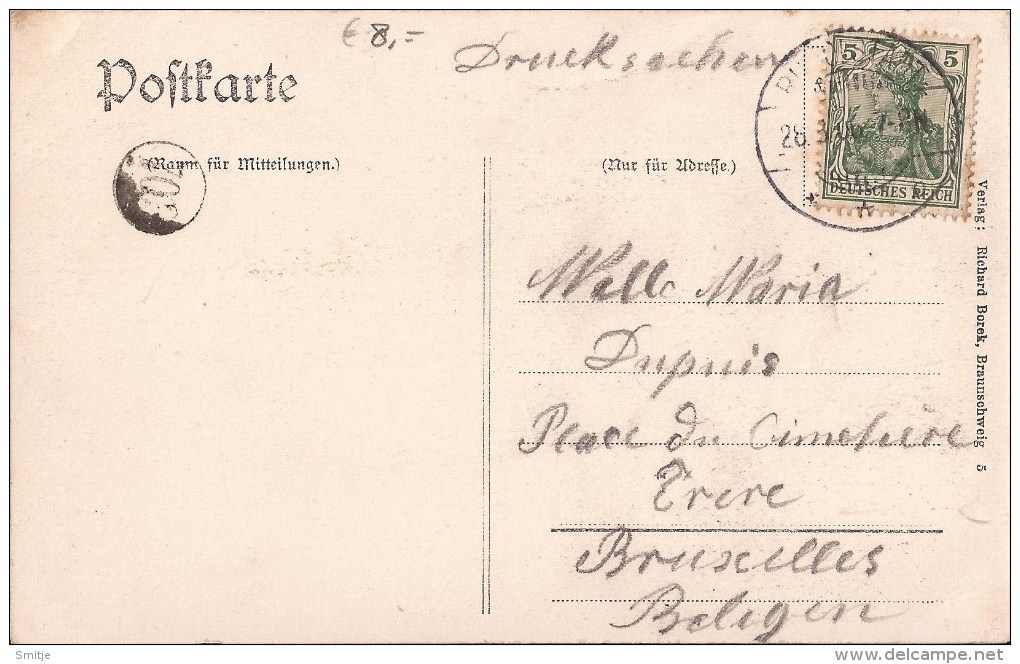 € 8,=
Drucksachen
Postkarte
5 5
28.3. 7-8N.
DEUTSCHES REICH
(Raum für Mitteilungen.)
(Nur für Adresse.)
Melle Maria
Dupuis
Place du Cimetière
Evere
Bruxelles
Belgien
Verlag: Richard Borek, Braunschweig 5
© Smitje
delcampe.net